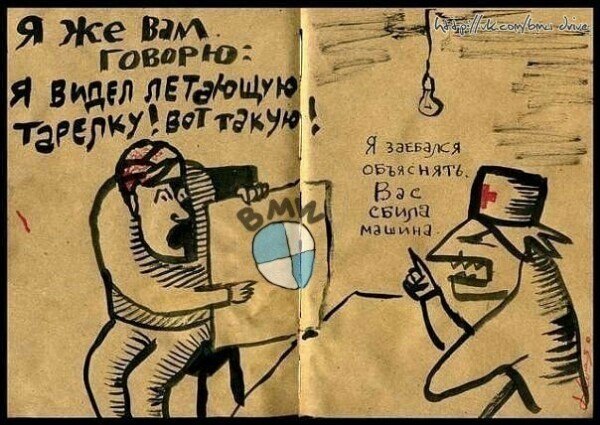 Я Же Вам
ГОВОРЮ:
Я ВИДЕЛ ЛЕТАЮЩУЮ
ТАРЕЛКУ! ВОТ ТАКУЮ!
BMW
Я ЗАЕБАЛСЯ
ОБЪЯСНЯТЬ.
Вас
СБИЛА
МАШИНА.
http://vk.com/bmw_drive